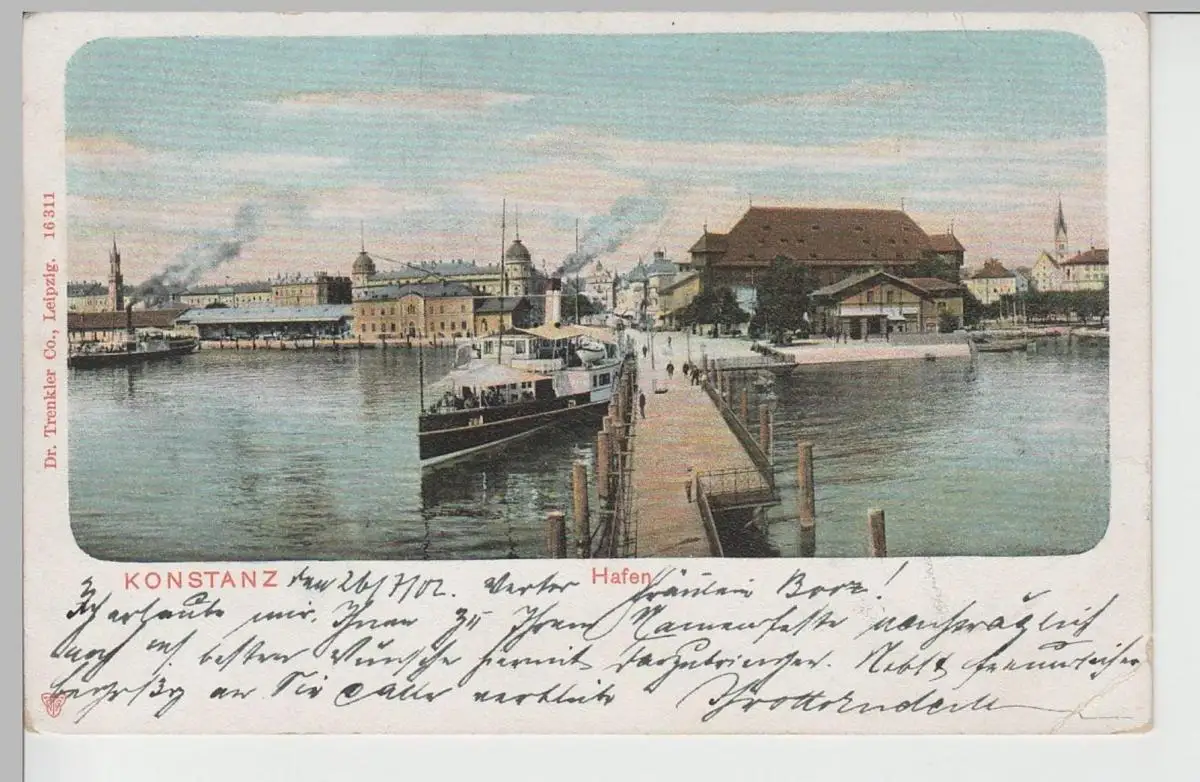 Dr. Trenkler Co., Leipzig. 16311
KONSTANZ den 26/7/02. Hafen
Wertes Fräulein Borz!
Ich erlaube mir, Ihnen zu Ihrem Namensfeste nachträglich
noch die besten Wünsche hiermit darzubringen. Nebst freundlicher
begrüßg an Sie alle verbleibe